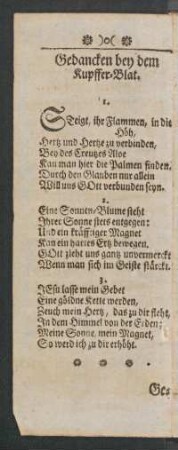 ❁ )o( ❁
Gedancken bey dem
Kupffer-Blat.
1.
Steigt, ihr Flammen, in die
Höh,
Hertz und Hertze zu verbinden,
Bey des Creutzes Aloe
Kan man hier die Palmen finden.
Durch den Glauben nur allein
Will uns GOtt verbunden seyn.
2.
Eine Sonnen-Blume steht
Ihrer Sonne stets entgegen:
Und ein kräfftiger Magnet
Kan ein hartes Ertz bewegen.
GOtt zieht uns gantz unvermerckt
Wenn man sich im Geiste stärckt.
3.
JEsu lasse mein Gebet
Eine göldne Kette werden,
Zeuch mein Hertz, das zu dir fleht,
In dem Himmel von der Erden;
Meine Sonne, mein Magnet,
So werd ich zu dir erhöht.
Ge-